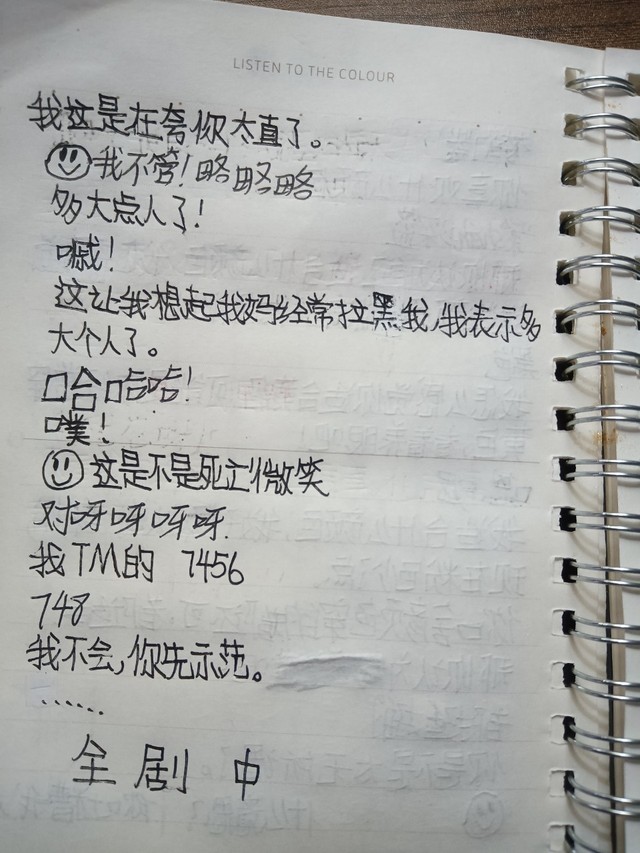 LISTEN TO THE COLOUR
我这是在夸你太直了。
我不管！略略略
多大点人了！
嘁！
这让我想起我妈经常拉黑我，我表示多
大个人了。
哈哈哈！
噗！
这是不是死亡微笑
对呀呀呀呀.
我TM的 7456
748
我不会，你先示范。
……
全剧中